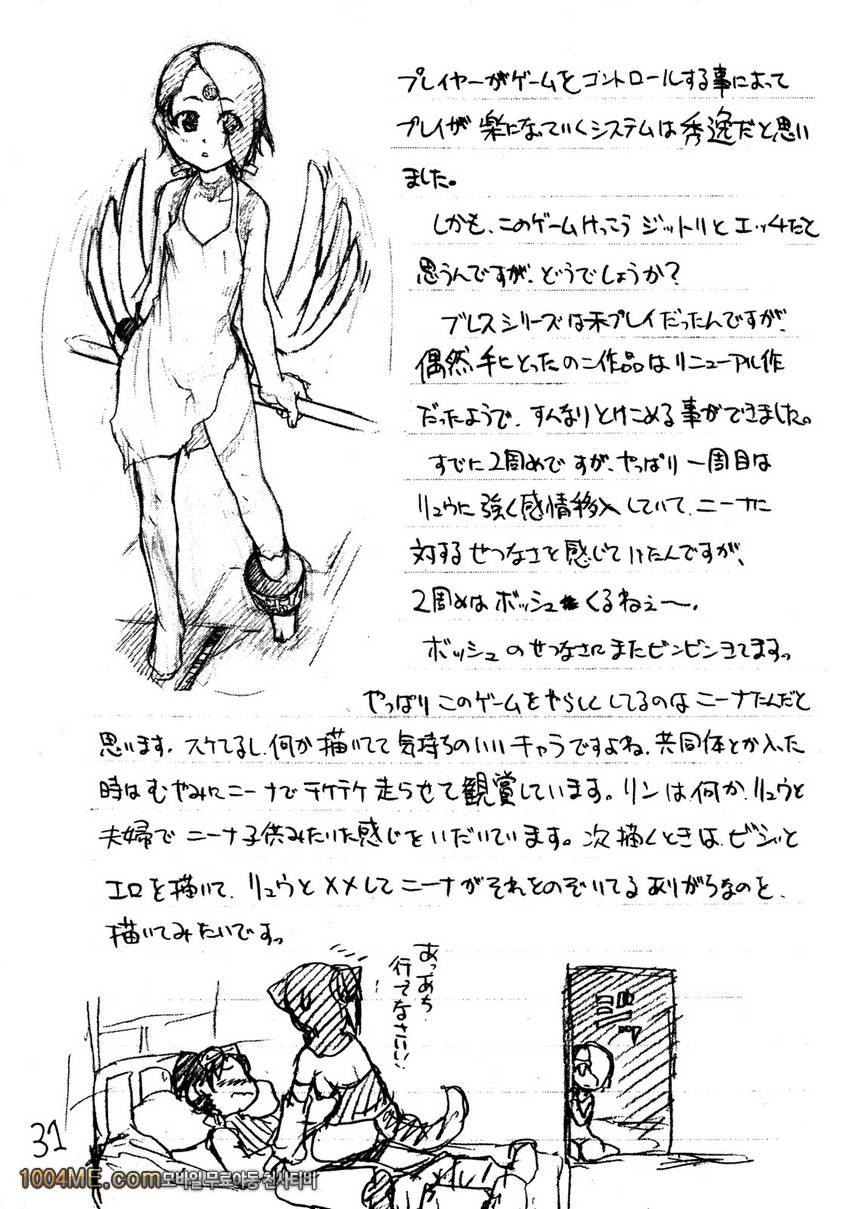 プレイヤーがゲームをコントロールする事によって
プレイが楽になっていくシステムは秀逸だと思い
ました。
しかも、このゲームけっこうジットリとエッチだと
思うんですが、どうでしょうか？
ブレスシリーズは未プレイだったんですが、
偶然手にとったのこ作品はリニューアル作
だったようで、すんなりとけこめる事ができました。
すでに2周めですが、やっぱり一周目は
リュウに強く感情移入していて、ニーナに
対するせつなさを感じていたんですが、
2周めはボッシュくるねぇー、
ボッシュのせつなさにまたビンビンきてますっ
やっぱりこのゲームをやらしくしてるのはニーナたんだと
思います。スケてるし、何か描いてて気持ちのいいキャラですよね、共同体とか入った
時はむやみにニーナでテケテケ走らせて観賞しています。リンは何か、リュウと
夫婦でニーナ子供みたいな感じをいだいています。次描くときは、ビシッと
エロを描いて、リュウと××してニーナがそれをのぞいてるありがちなのを、
描いてみたいですっ
あっあち
行てなさい！
ジーッ
31
1004ME.com모바일무료야동천사티비